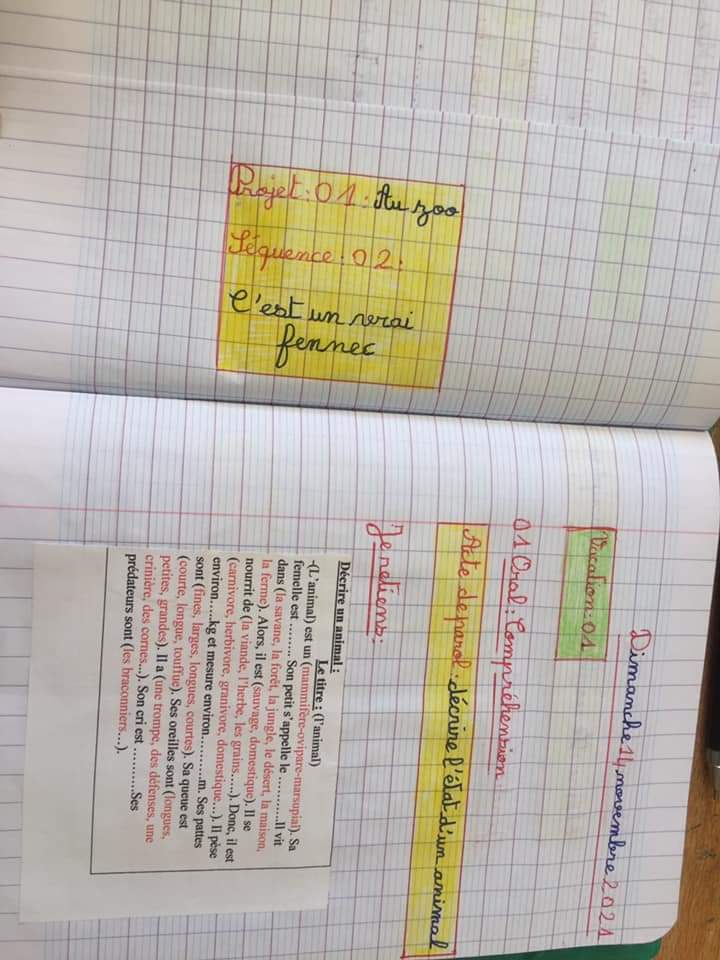 Projet.01: Au zoo
Séquence.02:
C'est un vrai
fennec
Dimanche 14, novembre 2021
Vacation:01
01 Oral: Compréhension
Acte de parol: décrire l'état d'un animal
Je retiens:
Décrire un animal :
Le titre : (l'animal)
-(L'animal) est un (mammifère-ovipare-marsupial). Sa
femelle est ……… Son petit s'appelle le …………Il vit
dans (la savane, la forêt, la jungle, le désert, la maison,
la ferme). Alors, il est (sauvage, domestique). Il se
nourrit de (la viande, l'herbe, les grains…..). Donc, il est
(carnivore, herbivore, granivore, domestique…). Il pèse
environ…..kg et mesure environ…………m. Ses pattes
sont (fines, larges, longues, courtes). Sa queue est
(courte, longue, touffue). Ses oreilles sont (longues,
petites, grandes). Il a (une trompe, des défenses, une
crinière, des cornes…). Son cri est ………..Ses
prédateurs sont (les braconniers…).